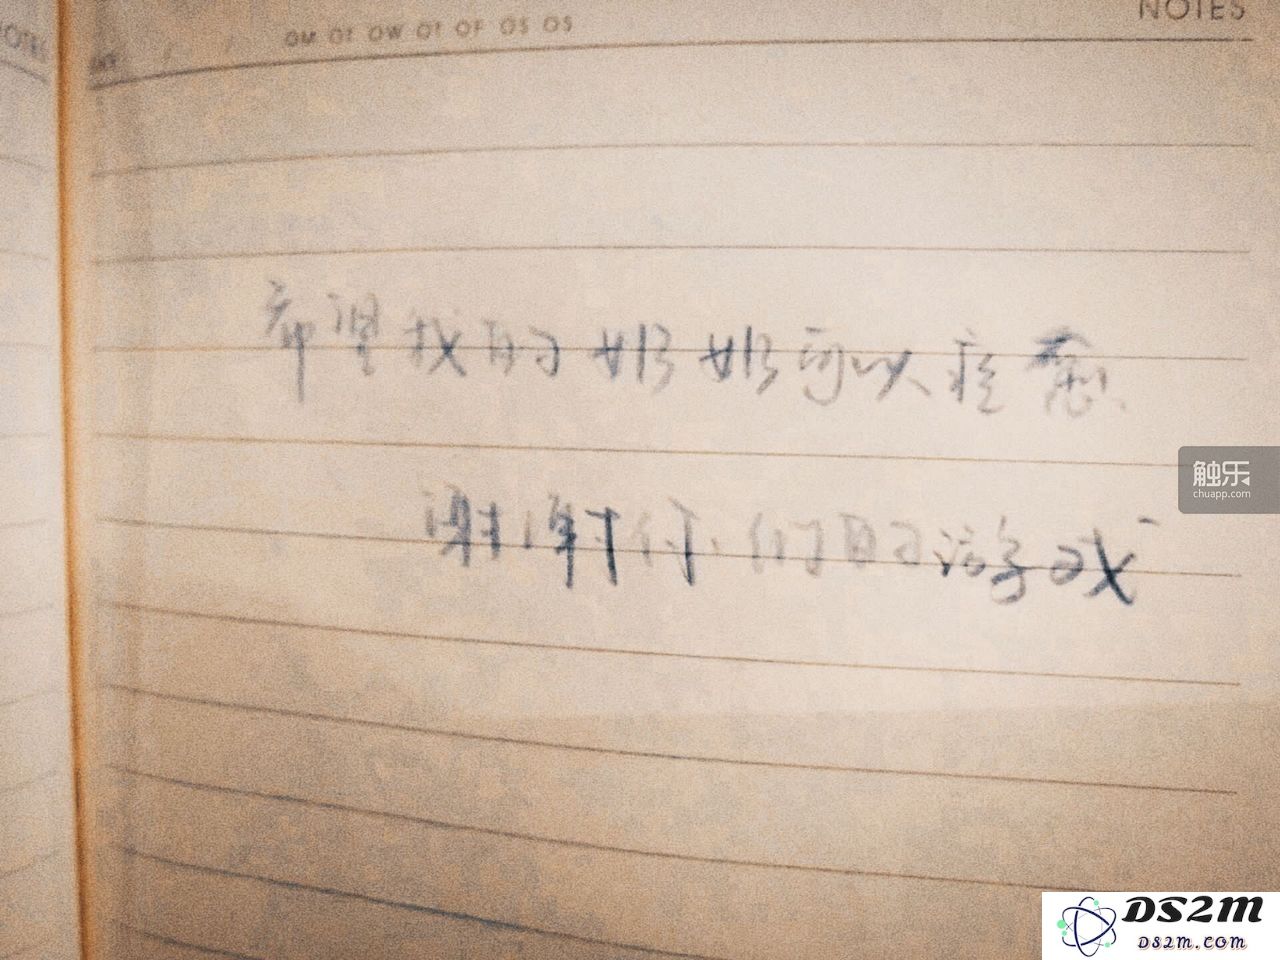 OM OT OW OT OF OS OS
NOTES
希望我的奶奶可以痊愈
谢谢你们的游戏
触乐
chuapp.com
DS2M
DS2M.COM